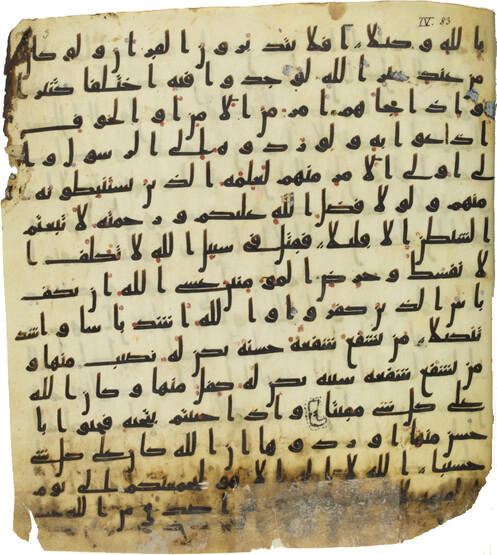 IV. 83
بالله وكيلا افلا يتدبرون القران ولو كان
من عند غير الله لوجدوا فيه اختلفا كثيرا
واذا جاهم امر من الامن او الخوف
اذاعوا به ولو ردوه الى الرسول وا
لى اولى الامر منهم لعلمه الذين يستنبطونه
منهم ولولا فضل الله عليكم ورحمته لاتبعتم
الشيطن الا قليلا فقتل فى سبيل الله لا تكلف ا
لا نفسك وحرض المومنين عسى الله ان يكف
باس الذين كفروا والله اشد باسا واشد
تنكيلا من يشفع شفعة حسنة يكن له نصيب منها و
من يشفع شفعة سيية يكن له كفل منها وكان الله
على كل شى مقيتا واذا حييتم بتحية فحيوا با
حسن منها او ردوها ان الله كان على كل شى
حسيبا الله لا اله الا هو ليجمعنكم الى يوم
من الله